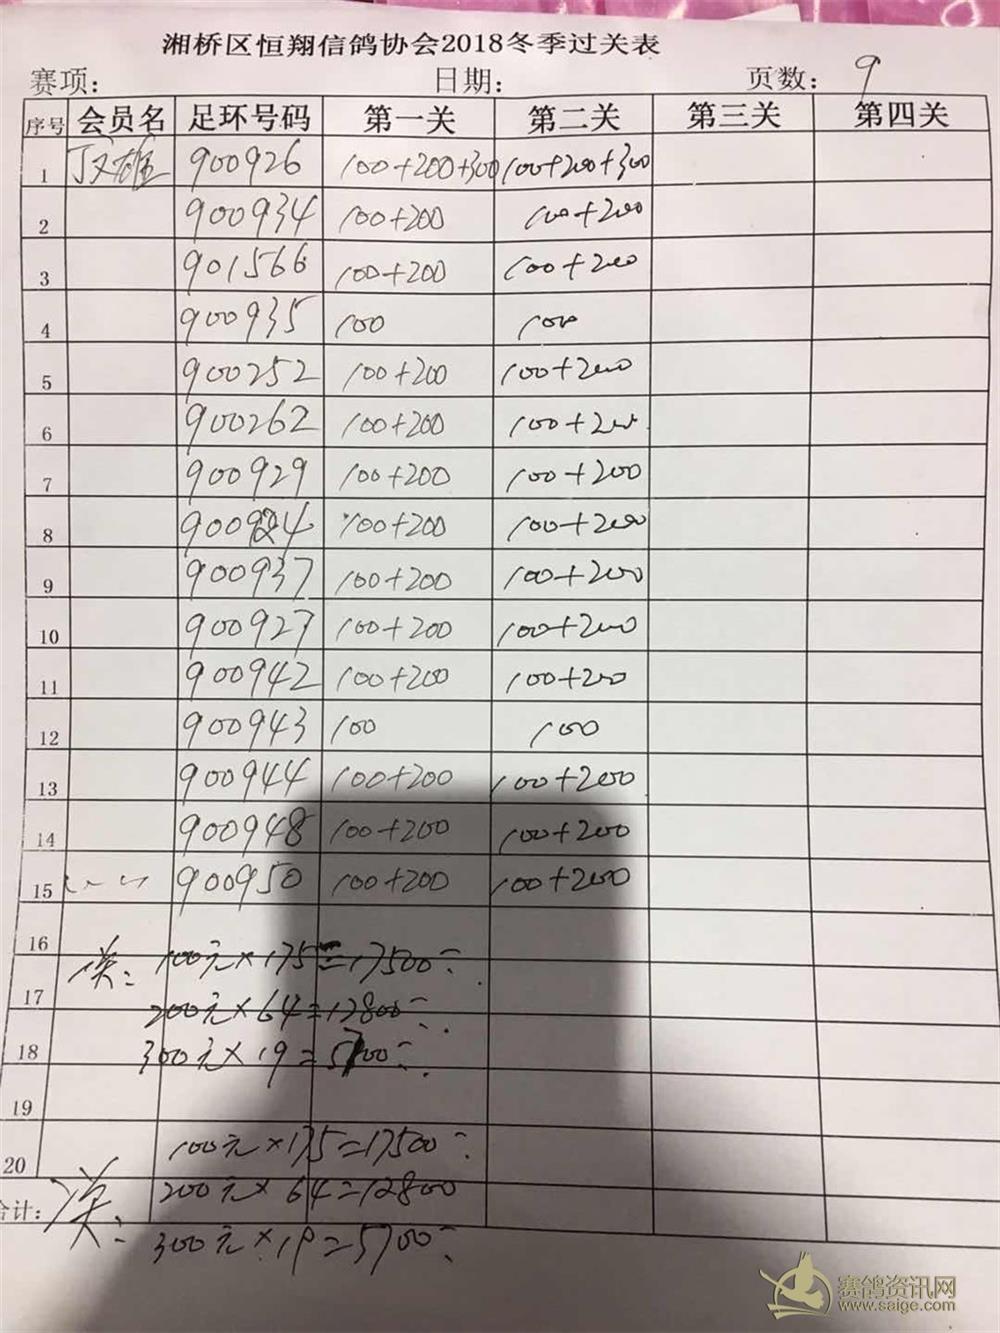 湘桥区恒翔信鸽协会2018冬季过关表
赛项: 日期: 页数: 9
序号 会员名 足环号码 第一关 第二关 第三关 第四关
1 丁文雄 900926 100+200+300 100+200+300
2 900934 100+200 100+200
3 901566 100+200 100+200
4 900935 100 100
5 900252 100+200 100+200
6 900262 100+200 100+200
7 900929 100+200 100+200
8 900924 100+200 100+200
9 900937 100+200 100+200
10 900927 100+200 100+200
11 900942 100+200 100+200
12 900943 100 100
13 900944 100+200 100+200
14 900948 100+200 100+200
15 900950 100+200 100+200
16
100元×175=17500
17
200元×64=12800
18 300元×19=5700
19
20 100元×175=17500
合计: 200元×64=12800
300元×19=5700
赛鸽资讯网
www.saige.com